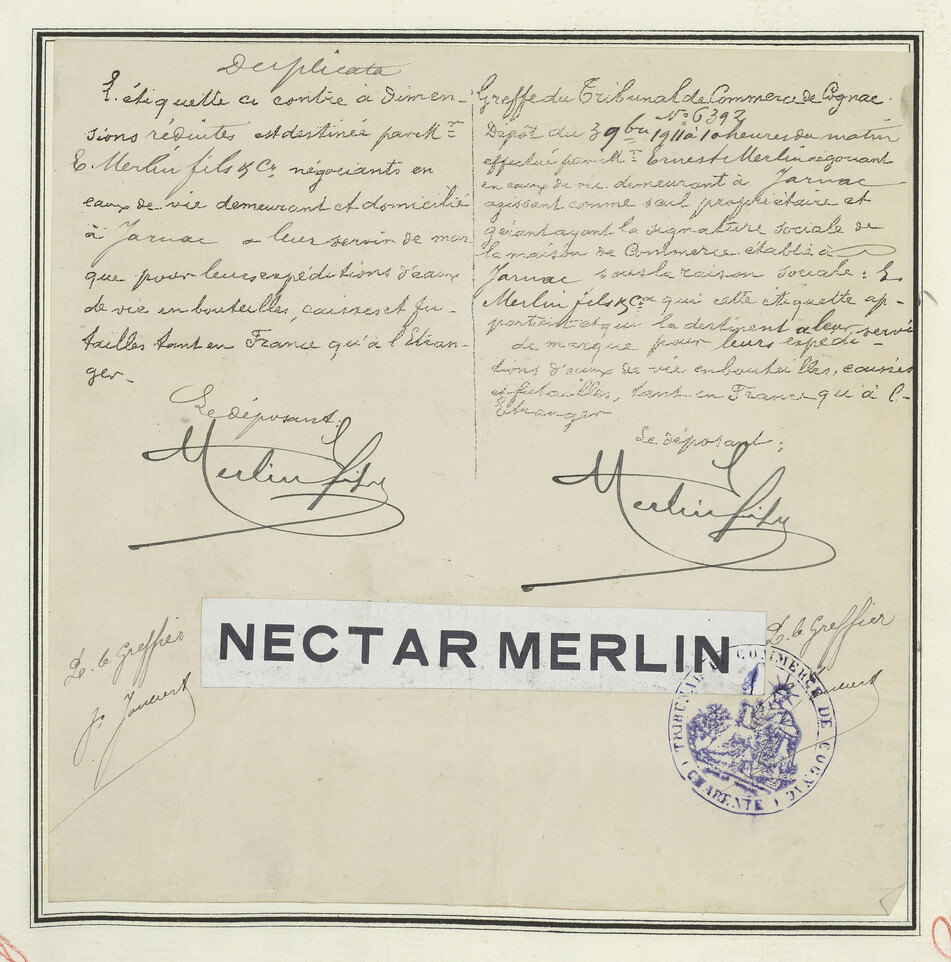 Duplicata
L'étiquette ci contre à dimen-
sions réduites est destinée par Mr
E. Merlin fils & Cie négociants en
eaux de vie demeurant et domicilié
à Jarnac a leur servir de mar
que pour leurs expéditions d'eaux
de vie en bouteilles, caisses et fu-
tailles tant en France qu'à l'Etran-
ger-
Le déposant:
Merlin fils
P. le Greffier
Greffe du Tribunal de Commerce de Cognac.
N° 6392
Dépôt du 3 9bre 1911 à 10 heures du matin
effectué par Mr Ernest Merlin négociant
en eaux de vie demeurant à Jarnac
agissant comme seul propriétaire et
gérant ayant la signature sociale de
la maison de Commerce établie à
Jarnac sous la raison sociale: E
Merlin fils & Cie qui cette étiquette ap-
partient et qui la destinent a leur servi
de marque pour leurs expédi-
tions d'eaux de vie en bouteilles, caisses
et futailles, tant en France qu'à l'-
Etranger
Le déposant:
Merlin fils
P. le Greffier
NECTAR MERLIN
TRIBUNAL DE COMMERCE DE COGNAC
(CHARENTE)